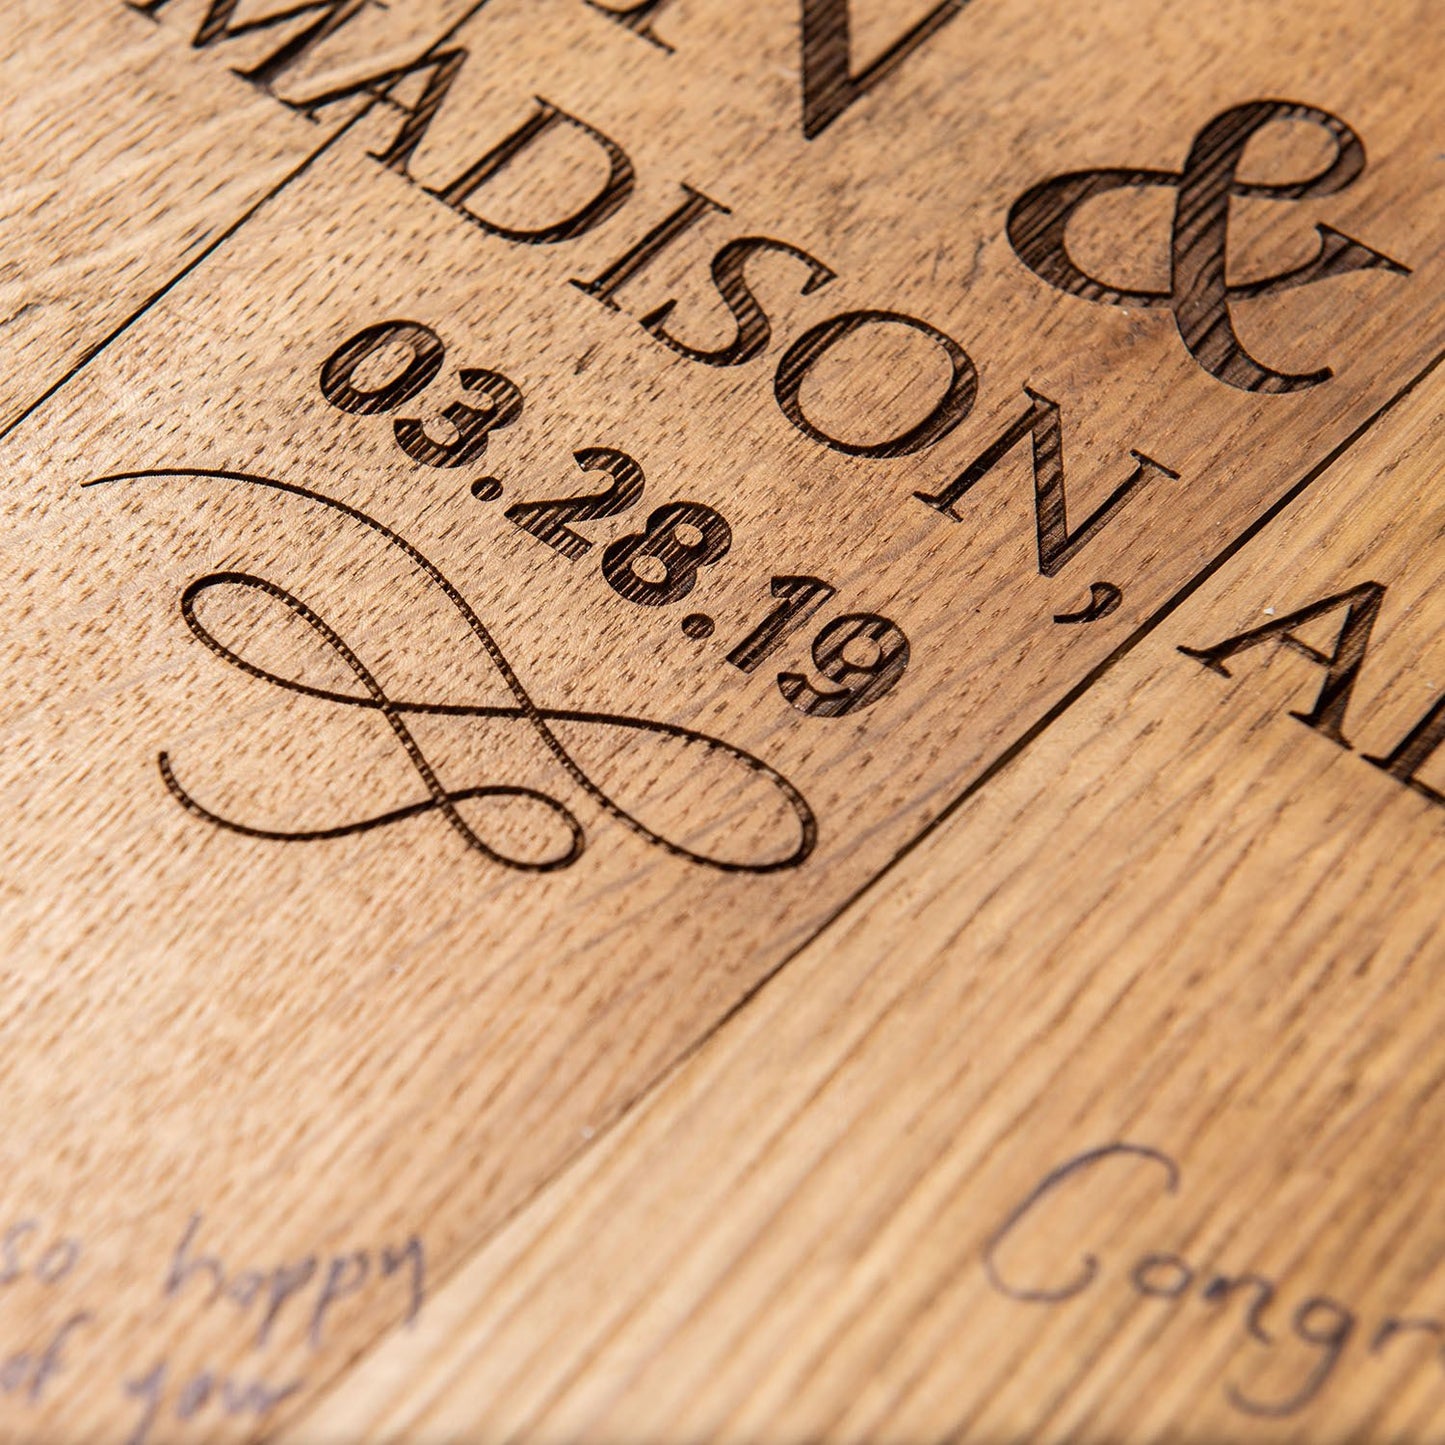 &
MADISON, AL
03.28.19
so happy
for you
Congr